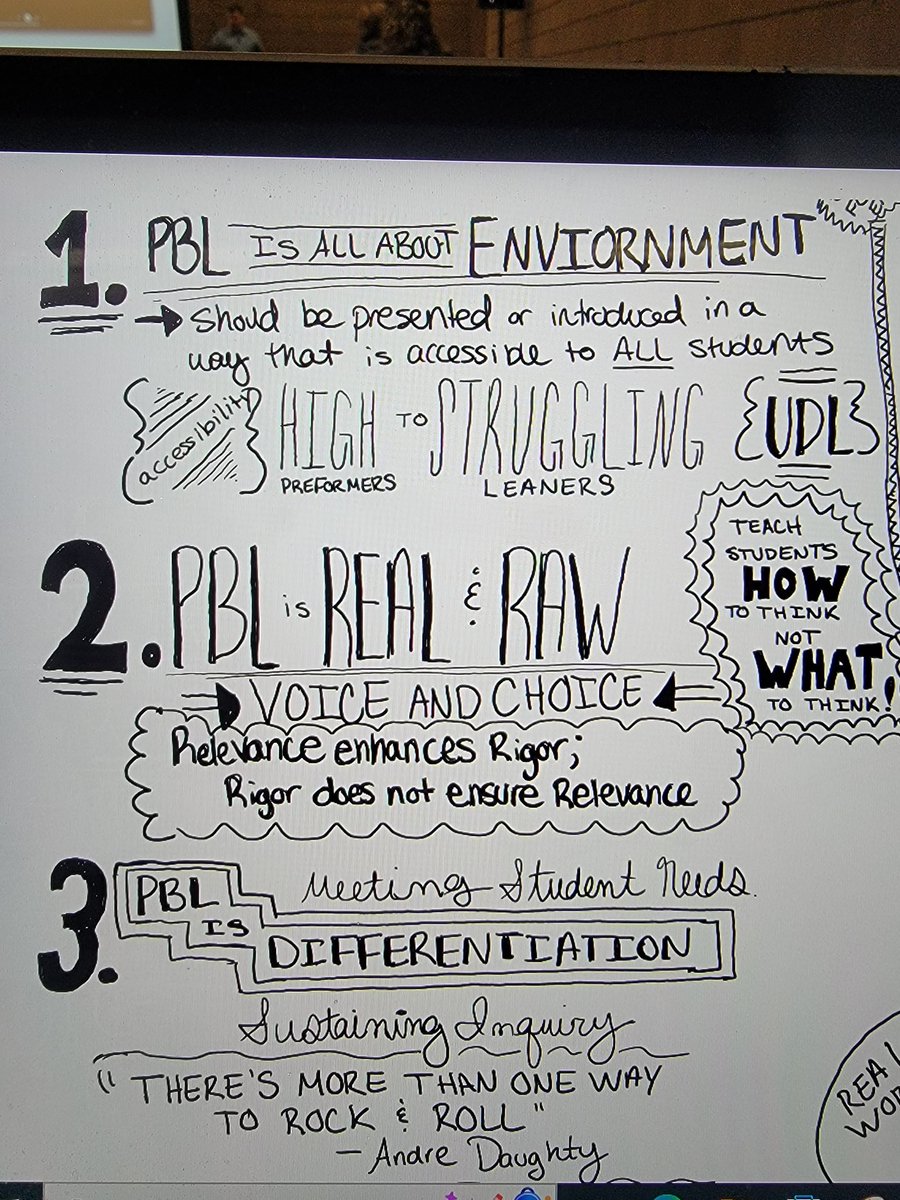 1. PBL IS ALL ABOUT ENVIORNMENT
→ Should be presented or introduced in a
way that is accessible to ALL students
accessibility
HIGH TO STRUGGLING
PREFORMERS LEANERS
{UDL}
TEACH
STUDENTS
HOW
TO THINK
NOT
WHAT
TO THINK!
2. PBL is REAL & RAW
VOICE AND CHOICE
Relevance enhances Rigor;
Rigor does not ensure Relevance
3. PBL
IS
DIFFERENTIATION
Meeting Student Needs.
Sustaining Inquiry
"THERE'S MORE THAN ONE WAY
TO ROCK & ROLL"
- Andre Daughty
REAL